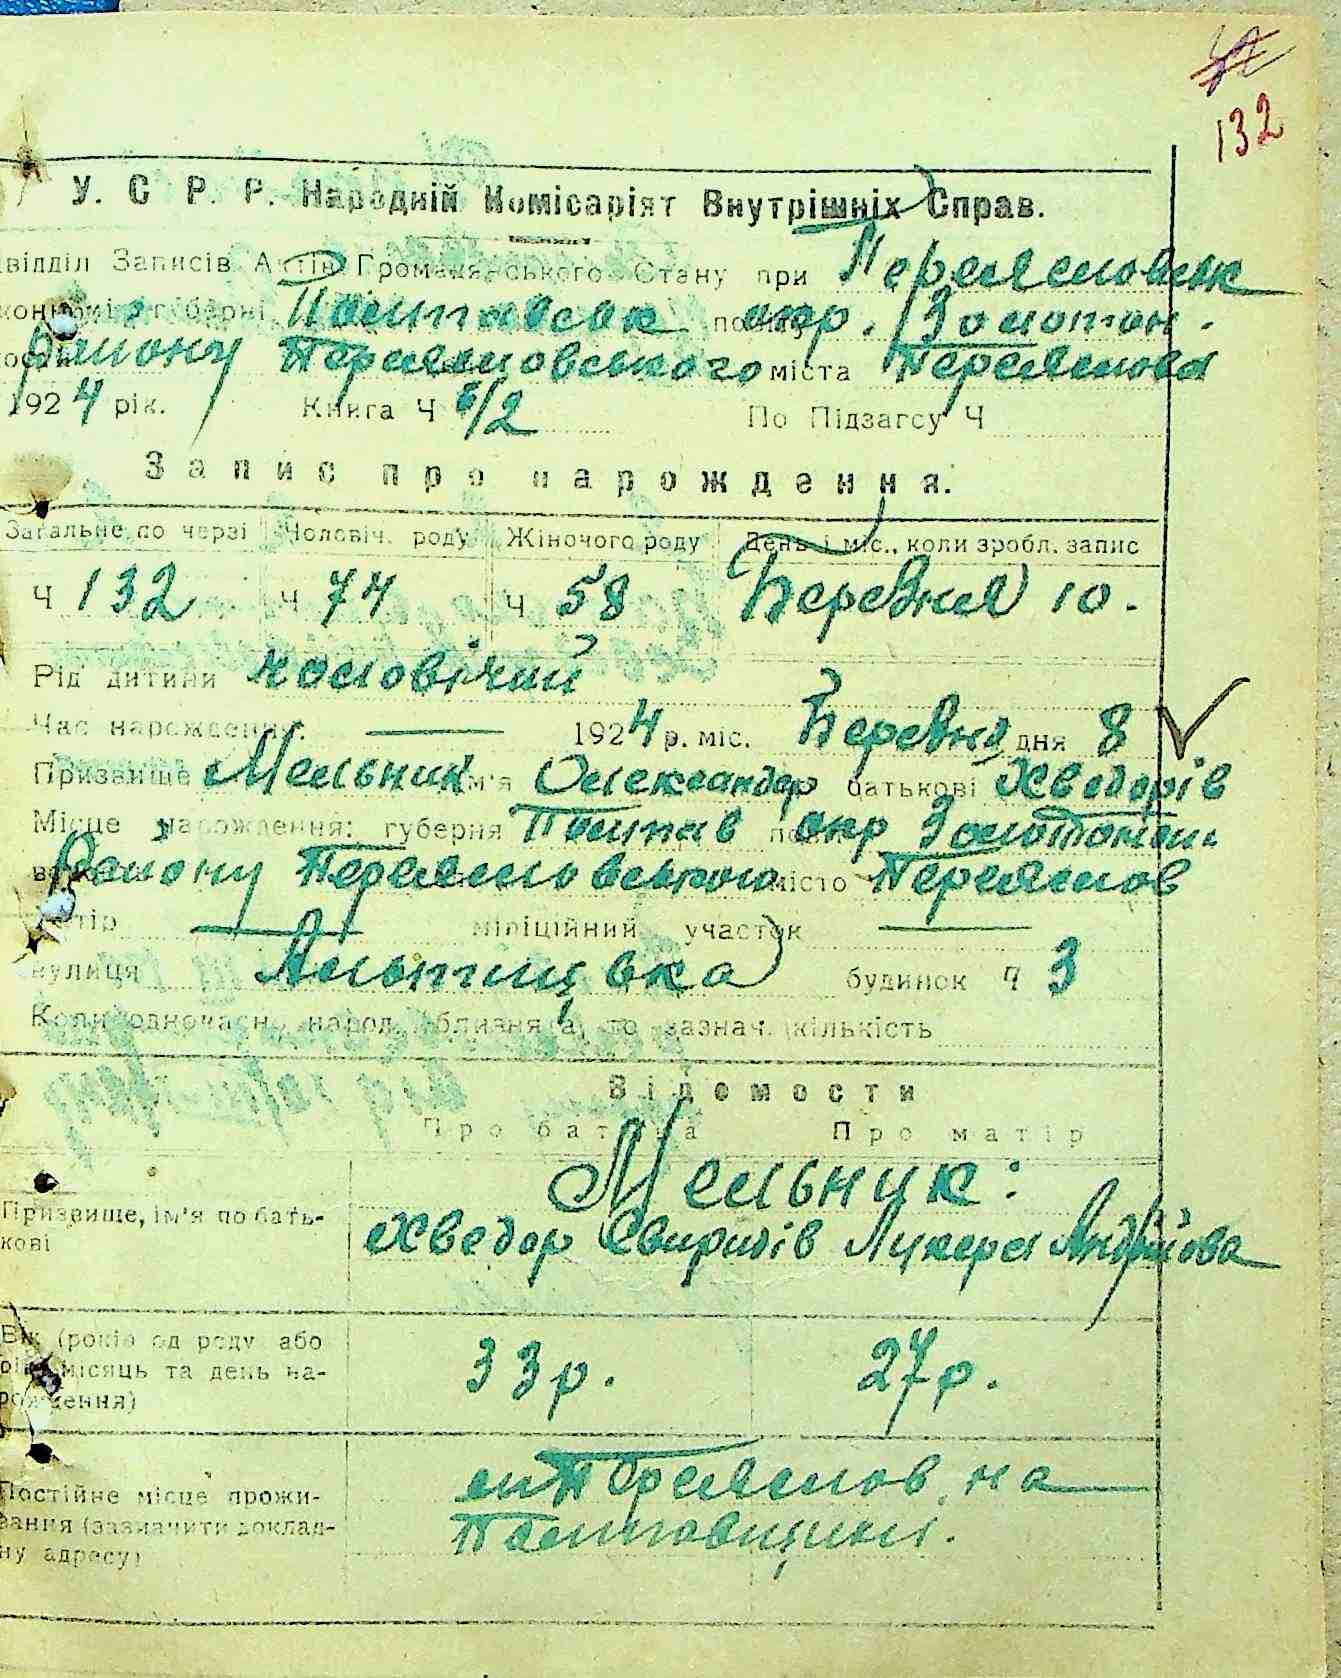 132
У. С Р. Р. Народній Комісаріят Внутрішніх Справ.
відділ Записів Актів Громадянського Стану при Переяславськ
губерні Полтавськ окр. Золотон.
Району Переяславського міста Переяслова
1924 рік. Книга Ч 6/2 По Підзагсу Ч
Запис про народження.
Загальне по черзі Чоловіч. роду Жіночого роду День і міс., коли зробл. запис
Ч 132 Ч 74 Ч 58 Березня 10.
Рід дитини чоловічий
Час народження: — 1924 р. міс. Березня дня 8
Призвище Мельник ім'я Олександер батькові Хведорів
Місце народження: губерня Полтав окр Золотонош
Району Переяславського місто Переяслов
— міліційний участок —
вулиця Альтицька будинок Ч 3
Коли одночасн. народ. близня а, то зазнач. кількість
Відомости
Про батька Про матір
Мельник:
Призвище, ім'я по бать-
кові
Хведор Свиридів Лукера Андрійова
Вік (років од роду або
місяць та день на-
родження)
33 р. 27 р.
Постійне місце прожи-
вання (зазначити доклад-
ну адресу)
м Переяслов на
Полтавщині.